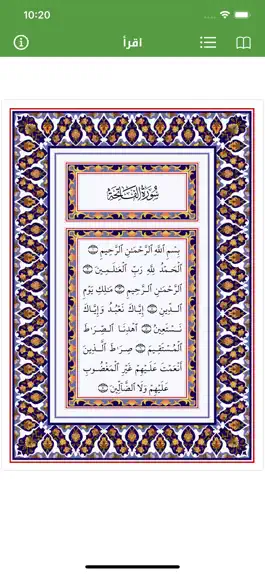 10:20
اقرأ
سُورَةُ الفَاتِحَةِ
بِسْمِ ٱللَّهِ ٱلرَّحْمَٰنِ ٱلرَّحِيمِ ۝١
ٱلْحَمْدُ لِلَّهِ رَبِّ ٱلْعَٰلَمِينَ ۝٢
ٱلرَّحْمَٰنِ ٱلرَّحِيمِ ۝٣ مَٰلِكِ يَوْمِ
ٱلدِّينِ ۝٤ إِيَّاكَ نَعْبُدُ وَإِيَّاكَ
نَسْتَعِينُ ۝٥ ٱهْدِنَا ٱلصِّرَٰطَ
ٱلْمُسْتَقِيمَ ۝٦ صِرَٰطَ ٱلَّذِينَ
أَنْعَمْتَ عَلَيْهِمْ غَيْرِ ٱلْمَغْضُوبِ
عَلَيْهِمْ وَلَا ٱلضَّآلِّينَ ۝٧